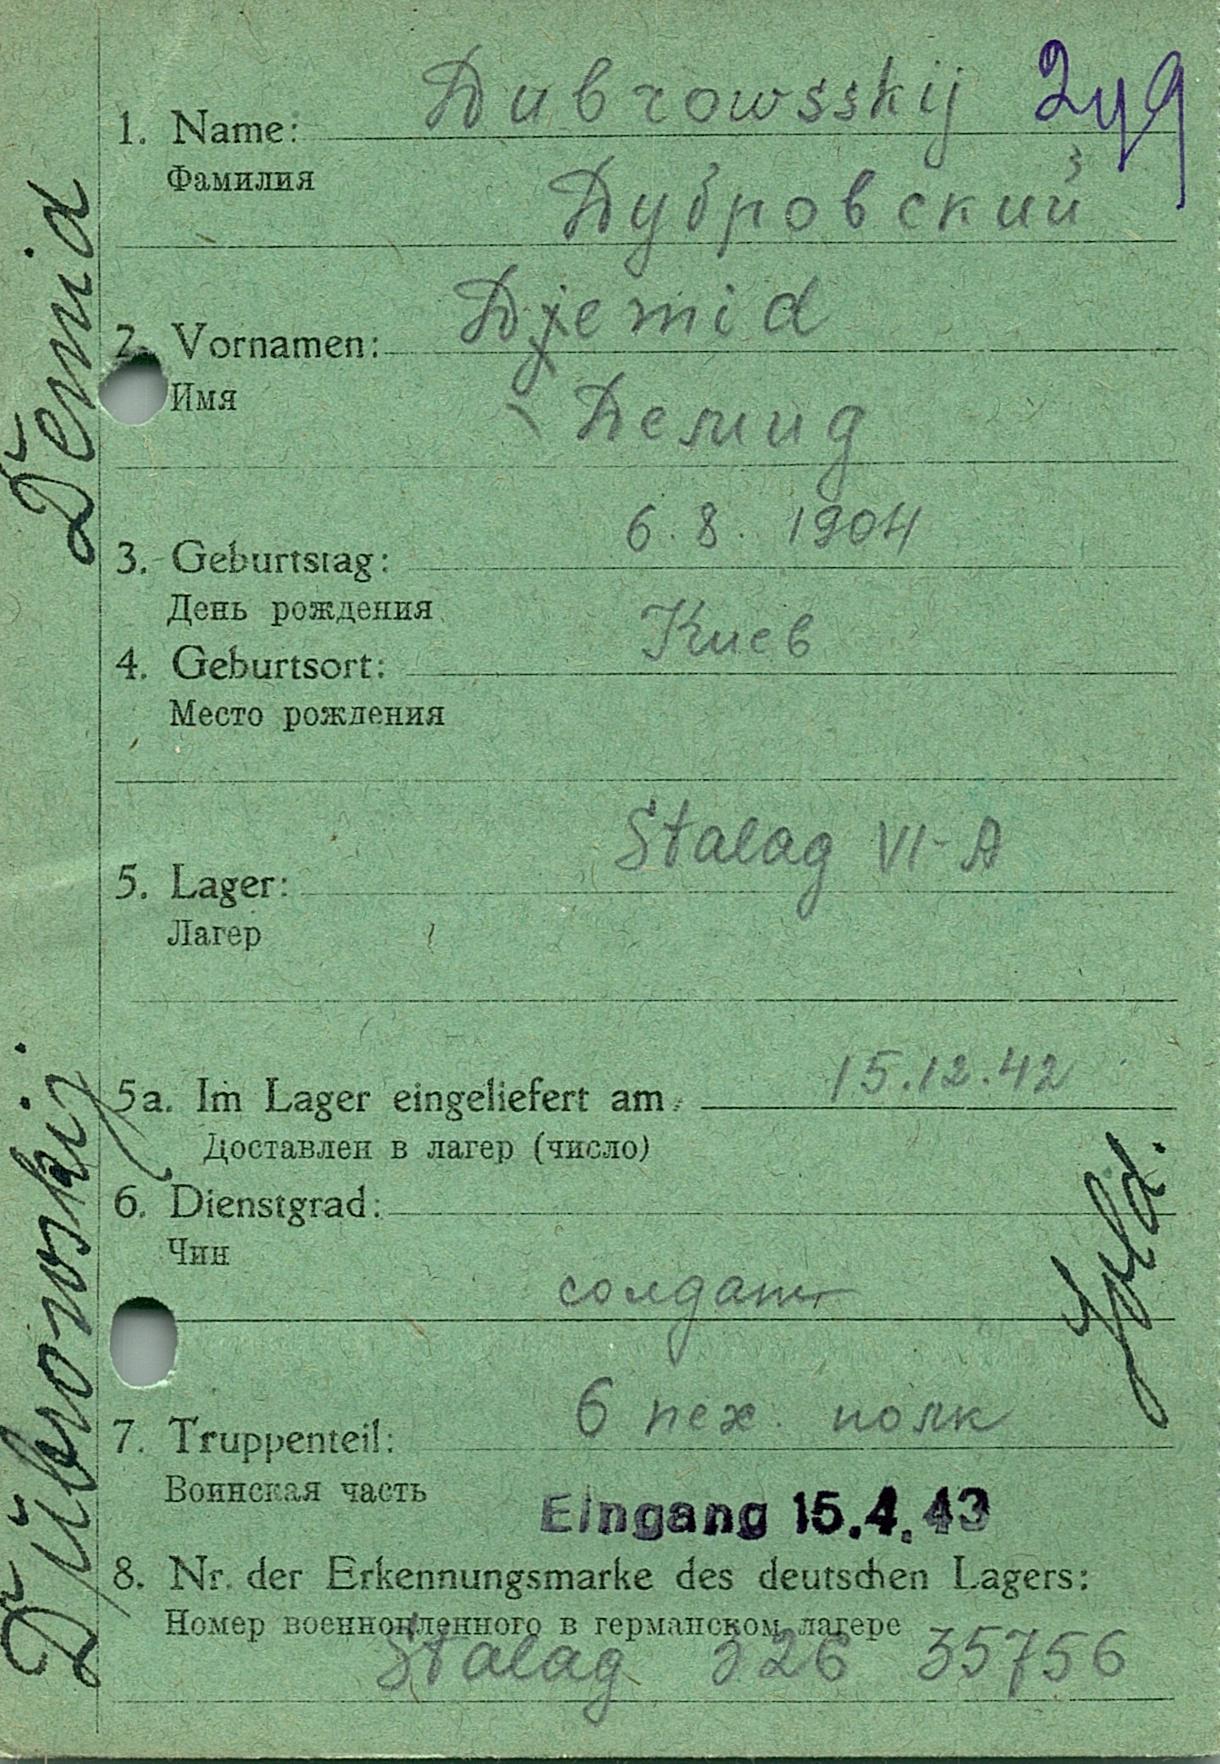 1. Name: Dubrowsskij
Фамилия
Дубровский
2. Vornamen: Djemid
Имя
Демид
3. Geburtstag: 6. 8. 1904
День рождения
4. Geburtsort: Киев
Место рождения
5. Lager: Stalag VI-A
Лагер
5a. Im Lager eingeliefert am 15.12.42
Доставлен в лагер (число)
6. Dienstgrad:
Чин
солдат
Sold.
7. Truppenteil: 6 пех. полк
Воинская часть
Eingang 15.4.43
8. Nr. der Erkennungsmarke des deutschen Lagers:
Номер военнопленного в германском лагере
Stalag 326 35756
Dubrowskij
Demid